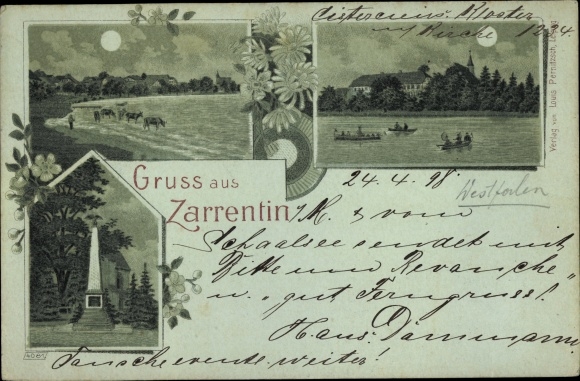 Cisterciens. Kloster
u. Kirche 1224
Verlag von Louis Pernitzsch, Leipzig
Gruss aus
Zarrentin
i/M. & vom
24.4.98
Westfalen
Schaalsee sendet mit
Bitte um Revanche
u. „gut Ferngruss"!
Hans Dammann.
Tausche event. weiter!